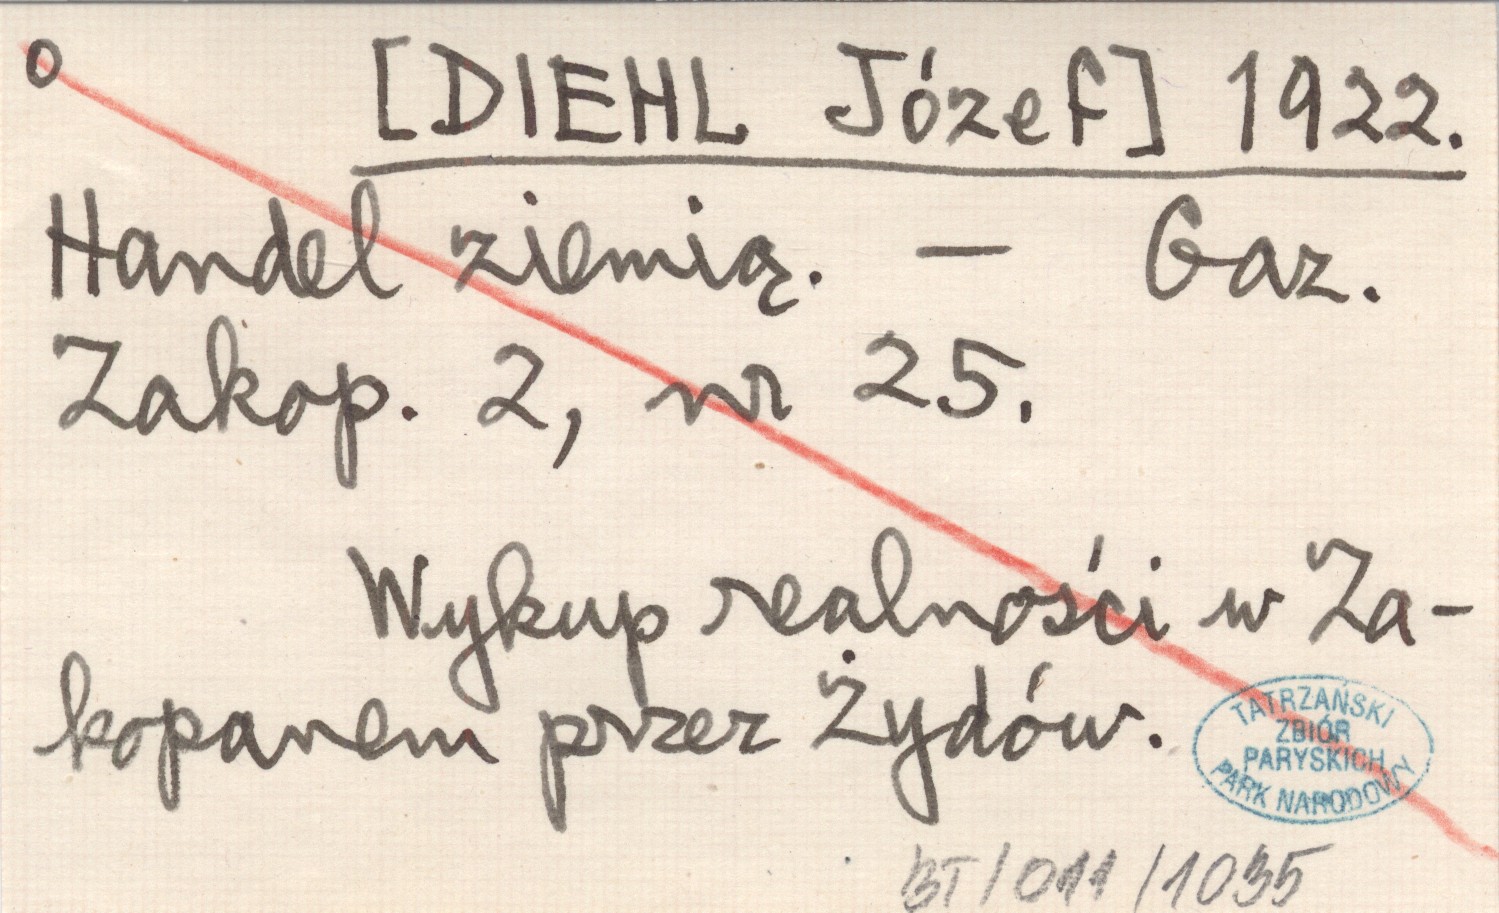 o [DIEHL Józef] 1922.
Handel ziemią. — Gaz.
Zakop. 2, nr 25.
Wykup realności w Za-
kopanem przez Żydów.
TATRZAŃSKI
ZBIÓR
PARYSKICH
PARK NARODOWY
BT/011/1035